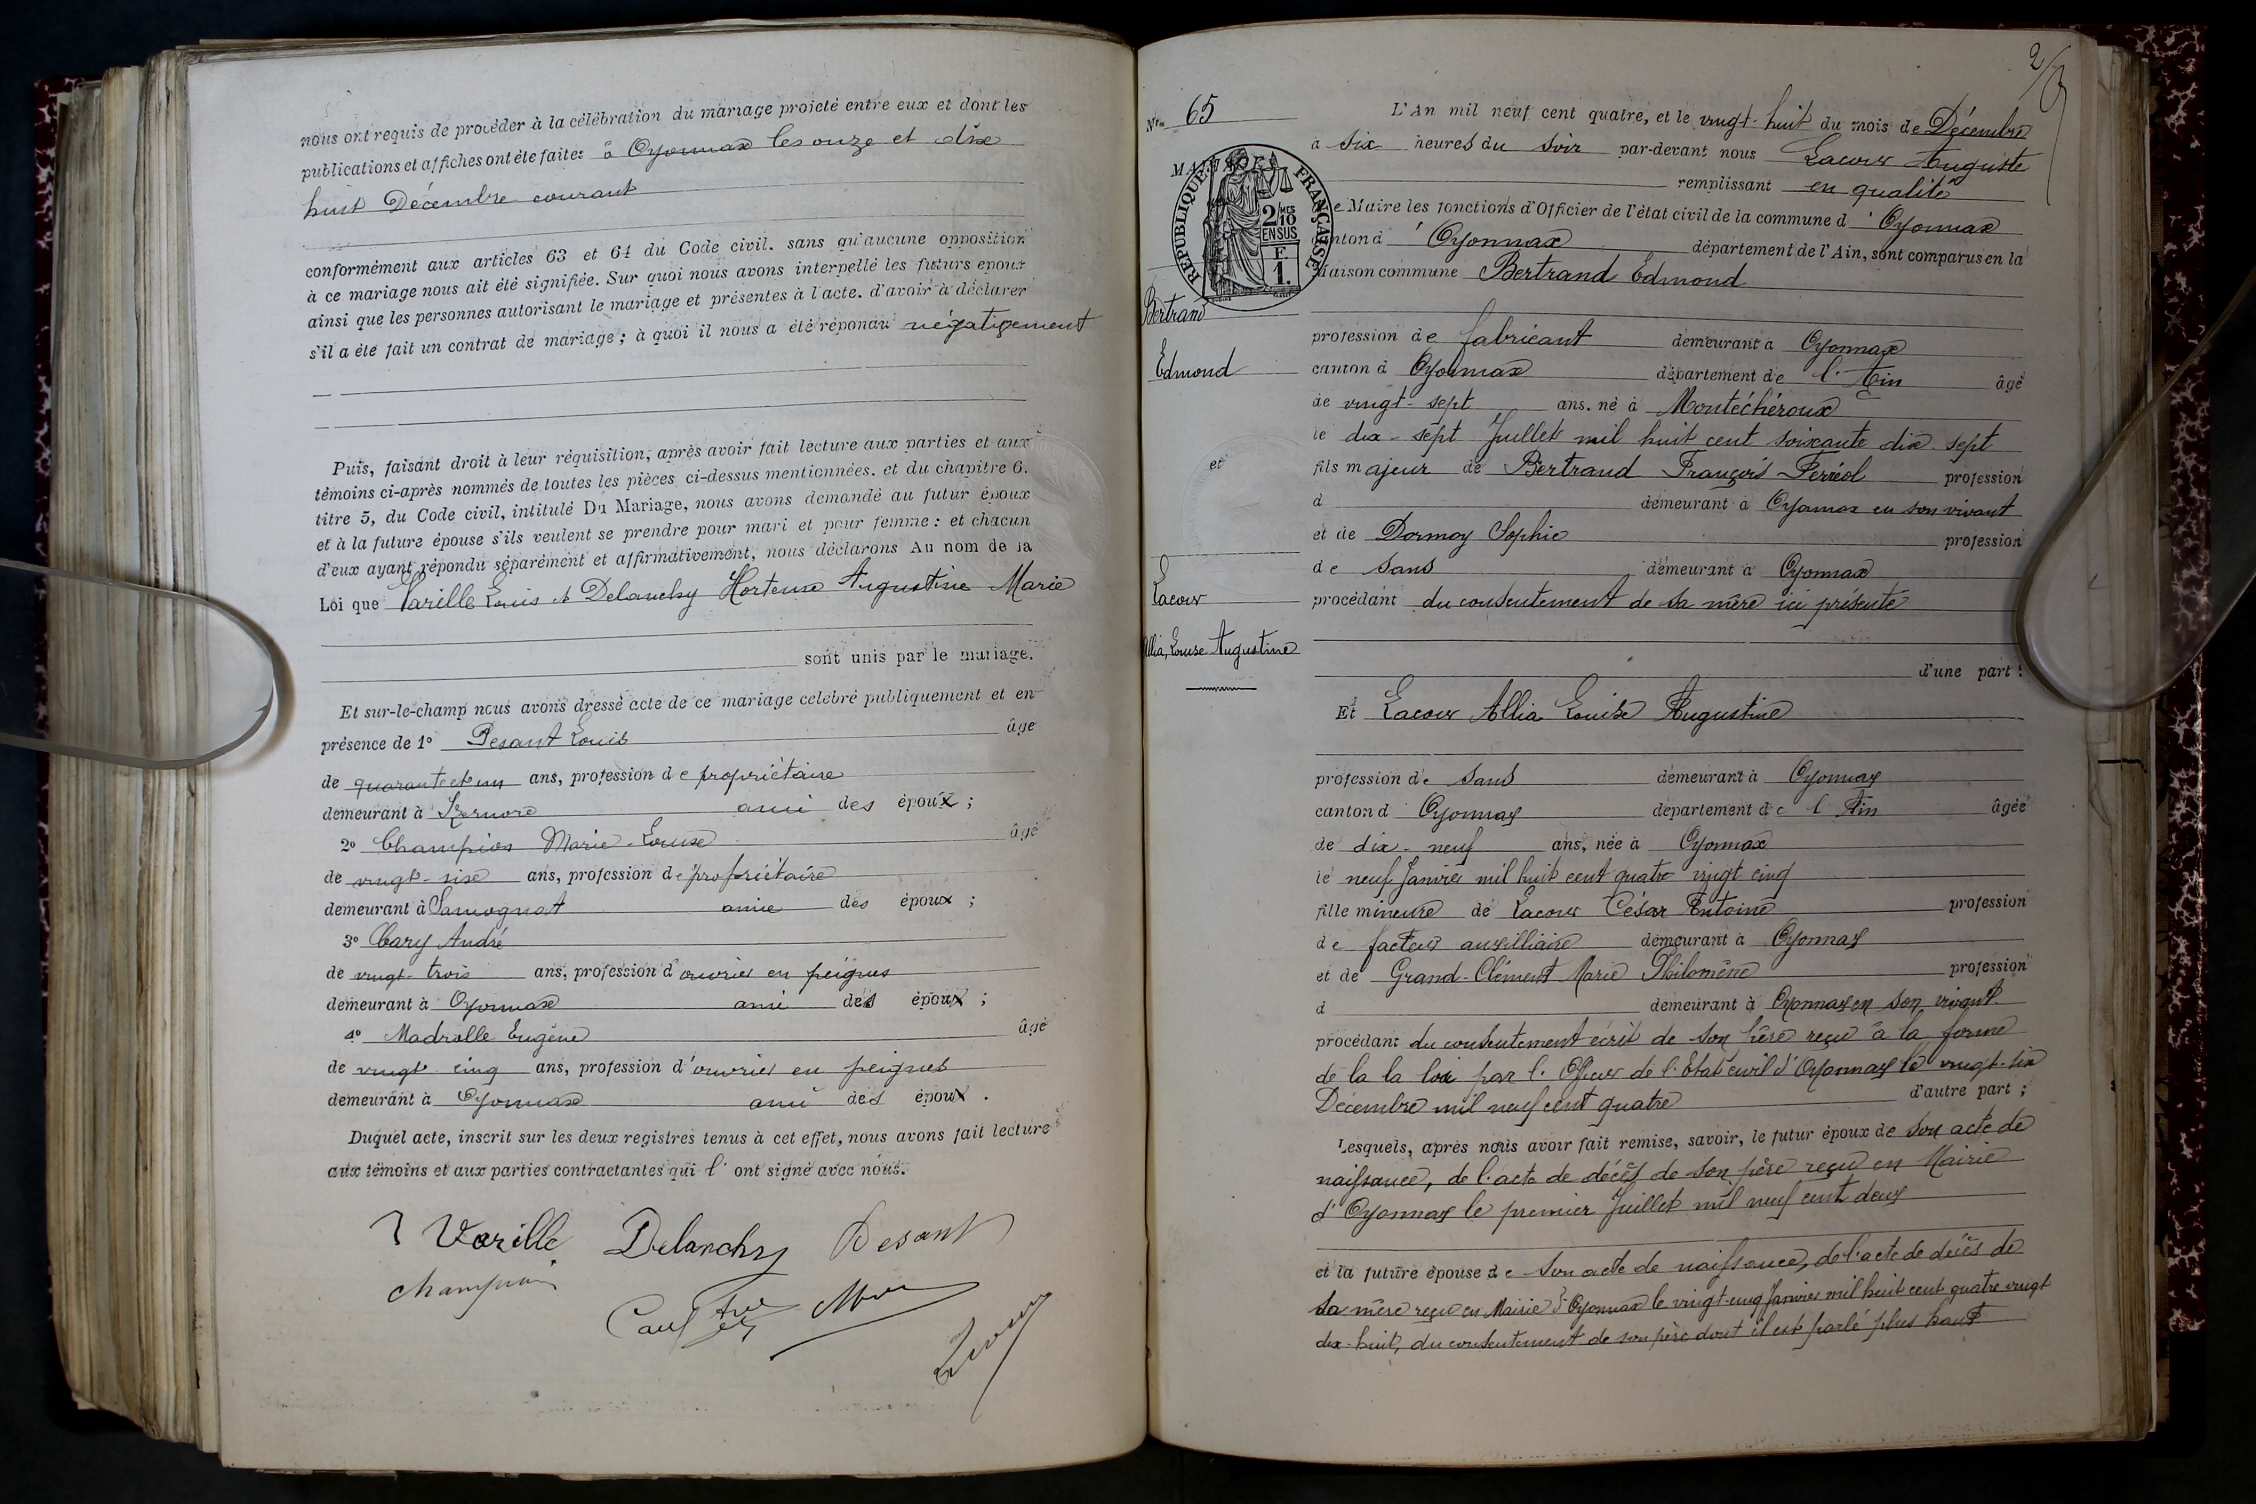 nous ont requis de procéder à la célébration du mariage projeté entre eux et dont les
publications et affiches ont été faites à Oyonnax les onze et dix
huit Décembre courant
conformément aux articles 63 et 64 du Code civil, sans qu'aucune opposition
à ce mariage nous ait été signifiée. Sur quoi nous avons interpellé les futurs époux
ainsi que les personnes autorisant le mariage et présentes à l'acte, d'avoir à déclarer
s'il a été fait un contrat de mariage ; à quoi il nous a été répondu négativement
Puis, faisant droit à leur réquisition, après avoir fait lecture aux parties et aux
témoins ci-après nommés de toutes les pièces ci-dessus mentionnées, et du chapitre 6,
titre 5, du Code civil, intitulé Du Mariage, nous avons demandé au futur époux
et à la future épouse s'ils veulent se prendre pour mari et pour femme : et chacun
d'eux ayant répondu séparément et affirmativement, nous déclarons Au nom de la
Loi que Varille Louis et Delanchy Hortense Augustine Marie
sont unis par le mariage.
Et sur-le-champ nous avons dressé acte de ce mariage célébré publiquement et en
présence de 1° Pesant Louis âgé
de quarante et un ans, profession de propriétaire
demeurant à Izernore ami des époux ;
2° Champion Marie-Louise âgé
de vingt-six ans, profession de propriétaire
demeurant à Samognat amie des époux ;
3° Cary André
de vingt-trois ans, profession d'ouvrier en peignes
demeurant à Oyonnax ami des époux ;
4° Madrolle Eugène âgé
de vingt-cinq ans, profession d'ouvrier en peignes
demeurant à Oyonnax ami des époux .
Duquel acte, inscrit sur les deux registres tenus à cet effet, nous avons fait lecture
aux témoins et aux parties contractantes qui l' ont signé avec nous.
Varille Delanchy Pesant
Champion
2
N° 65
MARIAGE
RÉPUBLIQUE FRANÇAISE
2/10 MES
EN SUS
F
1.
Bertrand
Edmond
et
Lacour
Allia, Louise Augustine
L'An mil neuf cent quatre, et le vingt-huit du mois de Décembre
à six heures du soir par-devant nous Lacour Auguste
remplissant en qualité
de Maire les fonctions d'Officier de l'état civil de la commune d' Oyonnax
canton d' Oyonnax département de l'Ain, sont comparus en la
Maison commune Bertrand Edmond
profession de fabricant demeurant à Oyonnax
canton d Oyonnax département de l'Ain âgé
de vingt-sept ans, né à Montéchéroux
le dix-sept Juillet mil huit cent soixante dix-sept
fils majeur de Bertrand François Ferréol profession
d demeurant à Oyonnax en son vivant
et de Dormoy Sophie profession
de sans demeurant à Oyonnax
procédant du consentement de sa mère ici présente
d'une part :
Et Lacour Allia Louise Augustine
profession de sans demeurant à Oyonnax
canton d' Oyonnax département de l'Ain âgée
de dix-neuf ans, née à Oyonnax
le neuf Janvier mil huit cent quatre vingt cinq
fille mineure de Lacour César Antoine profession
de facteur auxilliaire demeurant à Oyonnax
et de Grand-Clément Marie Philomène profession
d demeurant à Oyonnax en son vivant
procédant du consentement écrit de son Père reçu à la forme
de la la loi par l'Officier de l'Etat civil d'Oyonnax le vingt-six
Décembre mil neuf cent quatre d'autre part ;
Lesquels, après nous avoir fait remise, savoir, le futur époux de son acte de
naissance, de l'acte de décès de son père reçu en Mairie
d'Oyonnax le premier Juillet mil neuf cent deux
et la future épouse de son acte de naissance, de l'acte de décès de
sa mère reçu en Mairie d'Oyonnax le vingt-cinq Janvier mil huit cent quatre vingt
dix-huit, du consentement de son père dont il est parlé plus haut